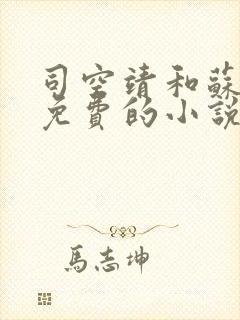 司空靖和蘇
免費的小說
馬志坤